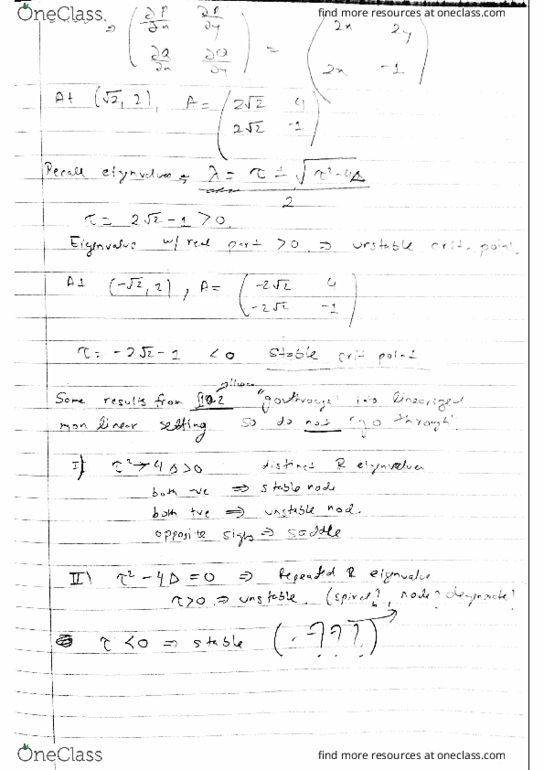 OneClass
find more resources at oneclass.com
⇒ (∂P/∂x ∂P/∂y ; ∂Q/∂x ∂Q/∂y) = (2x 2y ; 2x -1)
At (√2, 2), A = (2√2 4 ; 2√2 -1)
Recall eigenvalues λ = τ ± √τ²-4Δ / 2
τ = 2√2 - 1 > 0.
Eigenvalue w/ real part > 0 ⇒ unstable crit. point.
At (-√2, 2), A = (-2√2 4 ; -2√2 -1)
τ = -2√2 - 1 < 0 stable crit point
Some results from "go through" into linearized
non linear setting so do not "go through".
I) τ² - 4Δ > 0 distinct R eigenvalues
both -ve ⇒ stable node
both +ve ⇒ unstable node.
opposite signs ⇒ saddle
II) τ² - 4Δ = 0 ⇒ Repeated R eigenvalue
τ > 0 ⇒ unstable. (spiral?, node? degenerate?
τ < 0 ⇒ stable (. ???)
OneClass
find more resources at oneclass.com